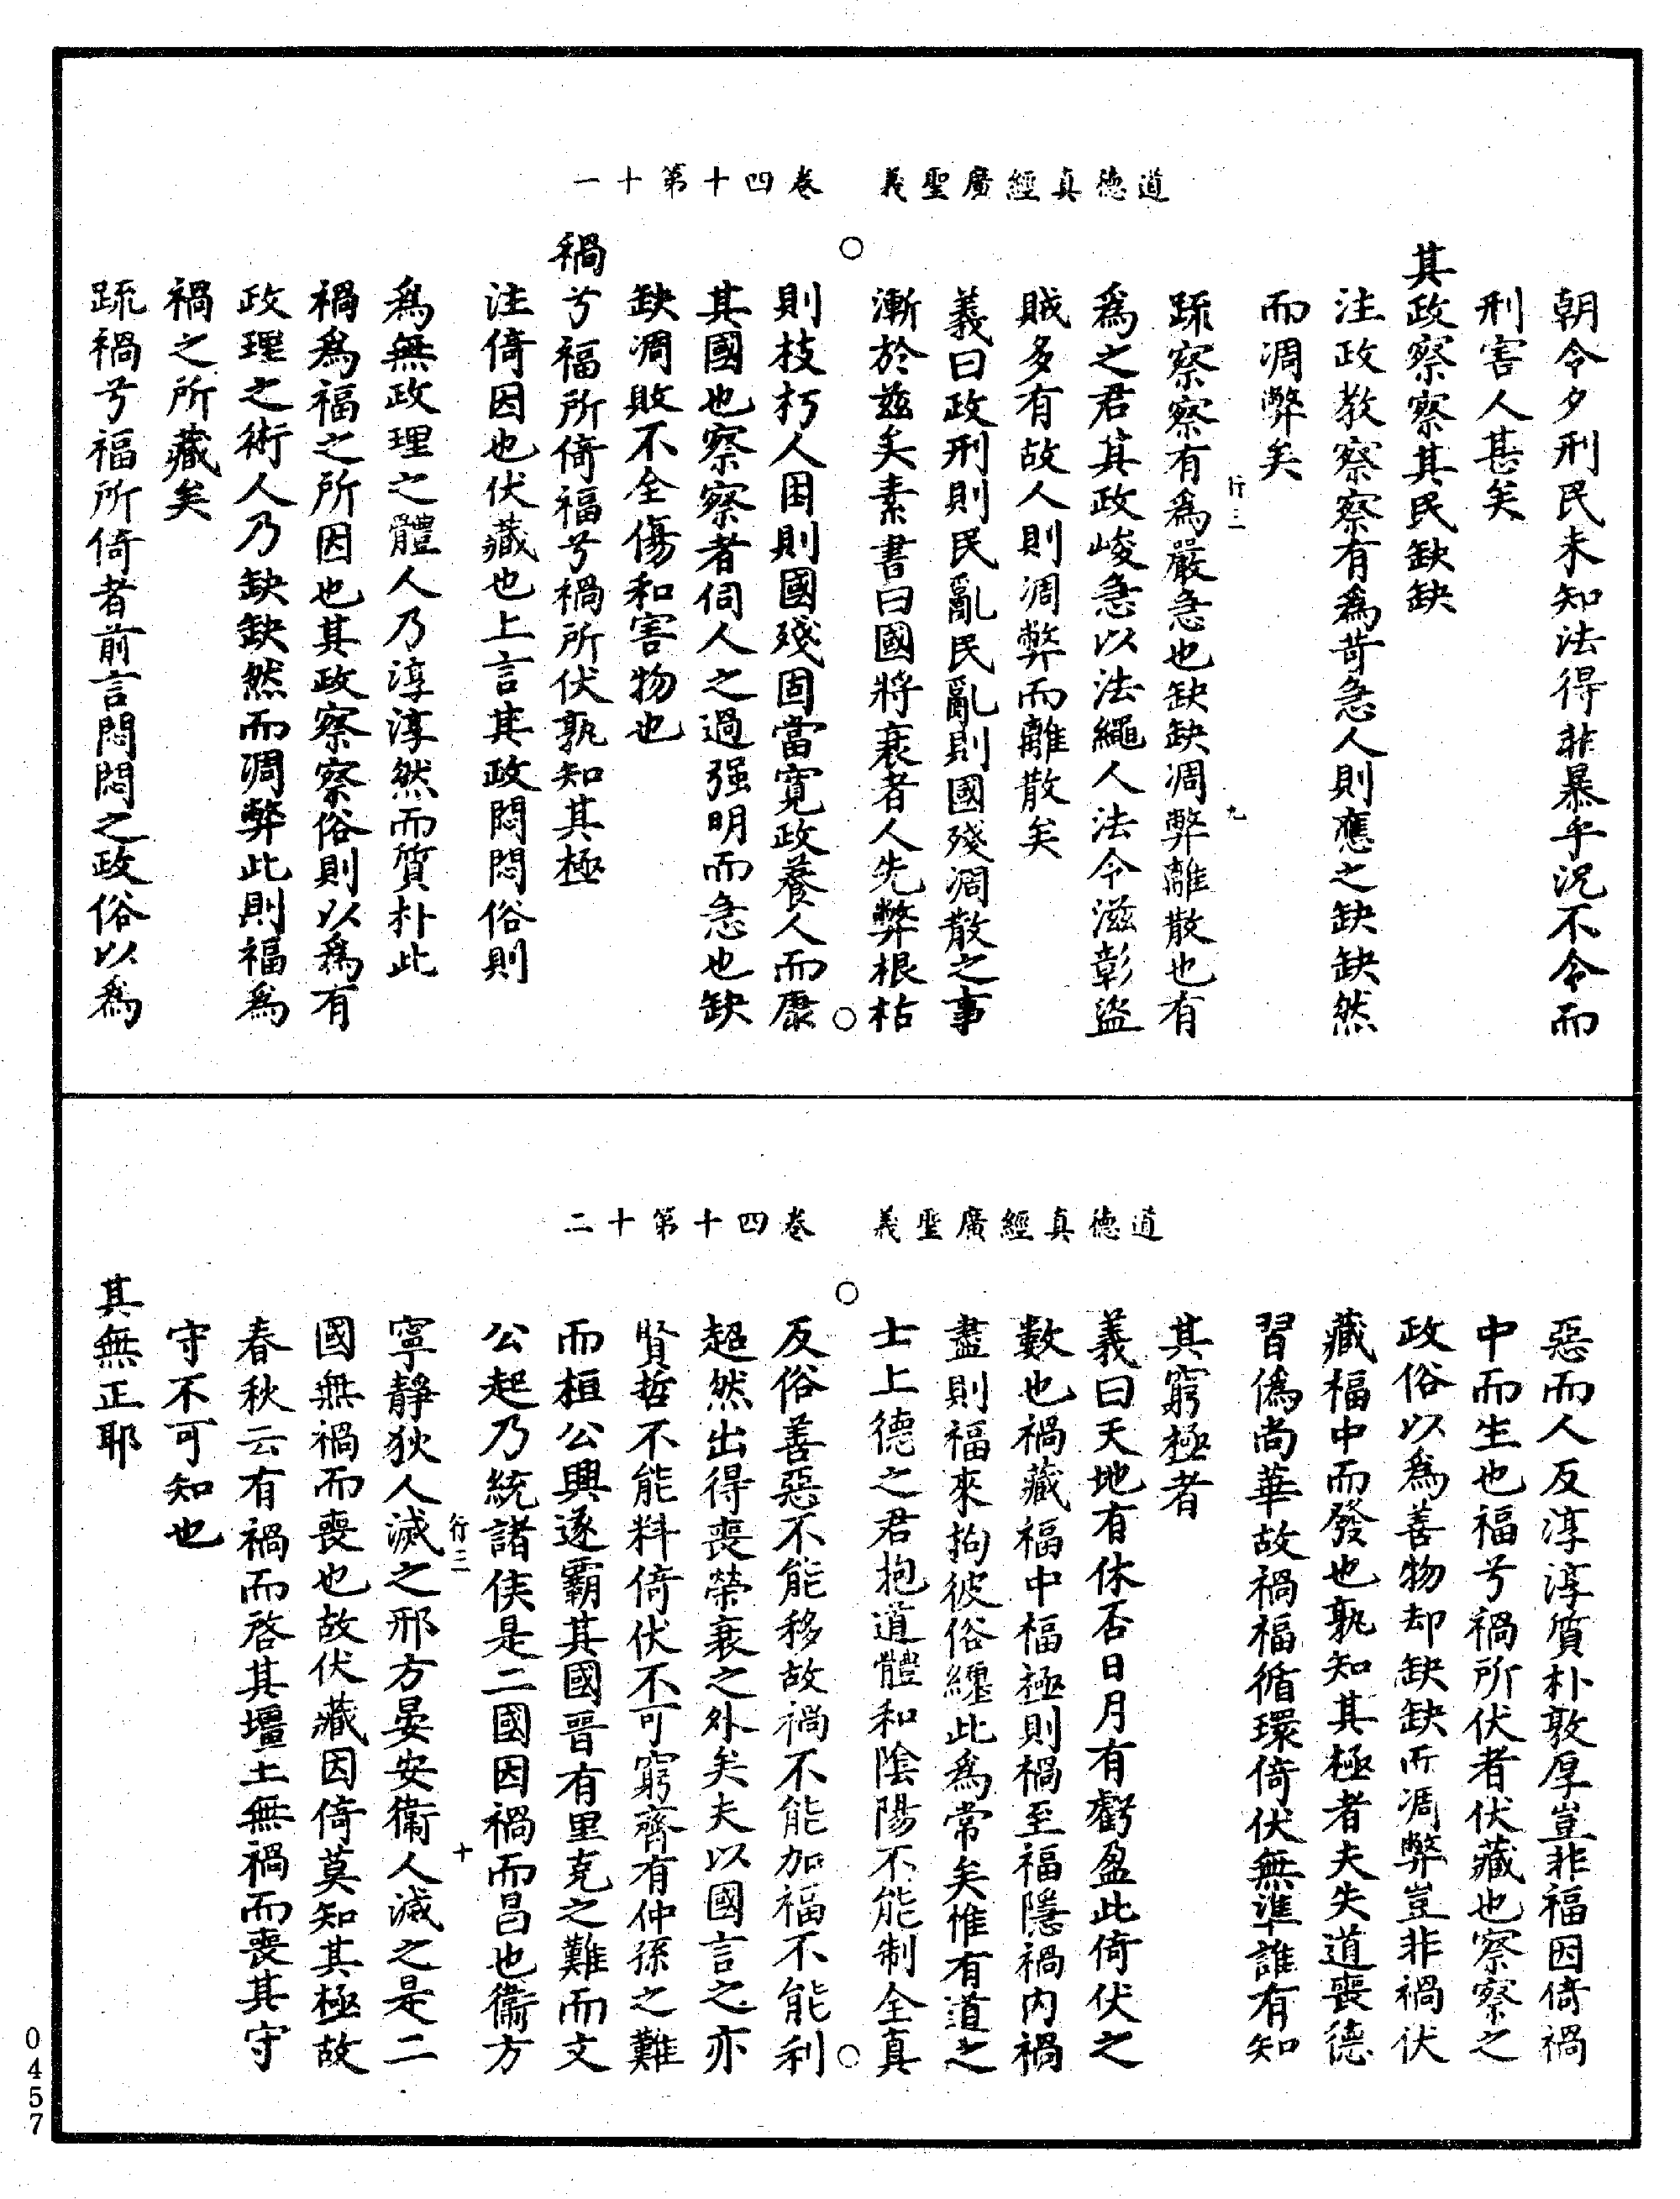 道德真經廣聖義　卷四十第十一
朝令夕刑民未知法得非暴乎況不令而
刑害人甚矣
其政察察其民缺缺
注政教察察有為苛急人則應之缺缺然
而凋弊矣
疏察察有為嚴急也缺缺凋弊離散也有
為之君其政峻急以法繩人法令滋彰盜
賊多有故人則凋弊而離散矣
義曰政刑則民亂民亂則國殘凋散之事
漸於茲矣素書曰國將衰者人先弊根枯
則枝朽人困則國殘固當寬政養人而康
其國也察察者伺人之過強明而急也缺
缺凋敗不全傷和害物也
禍兮福所倚福兮禍所伏孰知其極
注倚因也伏藏也上言其政悶悶俗則
為無政理之體人乃淳淳然而質朴此
禍為福之所因也其政察察俗則以為有
政理之術人乃缺缺然而凋弊此則福為
禍之所藏矣
疏禍兮福所倚者前言悶悶之政俗以為
行三
九
道德真經廣聖義　卷四十第十二
惡而人反淳淳質朴敦厚豈非福因倚禍
中而生也福兮禍所伏者伏藏也察察之
政俗以為善物却缺缺而凋弊豈非禍伏
藏福中而發也孰知其極者夫失道喪德
習偽尚華故禍福循環倚伏無準誰有知
其窮極者
義曰天地有休否日月有虧盈此倚伏之
數也禍藏福中福極則禍至福隱禍內禍
盡則福來拘彼俗纏此為常矣惟有道之
士上德之君抱道體和陰陽不能制全真
反俗善惡不能移故禍不能加福不能利
超然出得喪榮衰之外矣夫以國言之亦
賢哲不能料倚伏不可窮齊有仲孫之難
而桓公興遂霸其國晉有里克之難而文
公起乃統諸侯是二國因禍而昌也衞方
寧靜狄人滅之邢方晏安衞人滅之是二
國無禍而喪也故伏藏因倚莫知其極故
春秋云有禍而啓其壃土無禍而喪其守
守不可知也
其無正耶
行三
十
0457